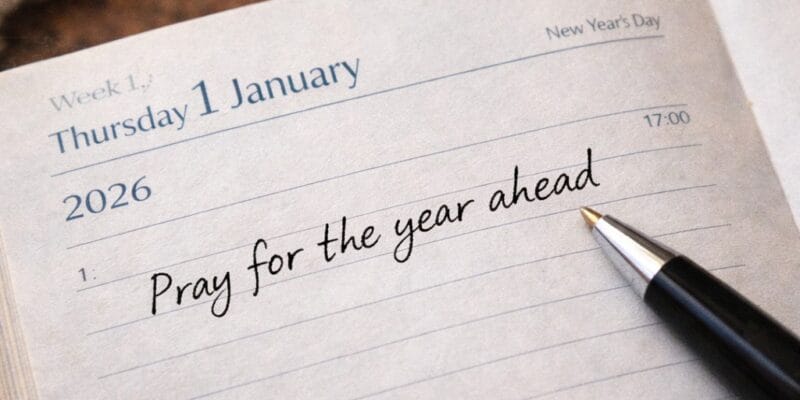 New Year's Day
Week 1
Thursday 1 January
17:00
2026
1:
Pray for the year ahead